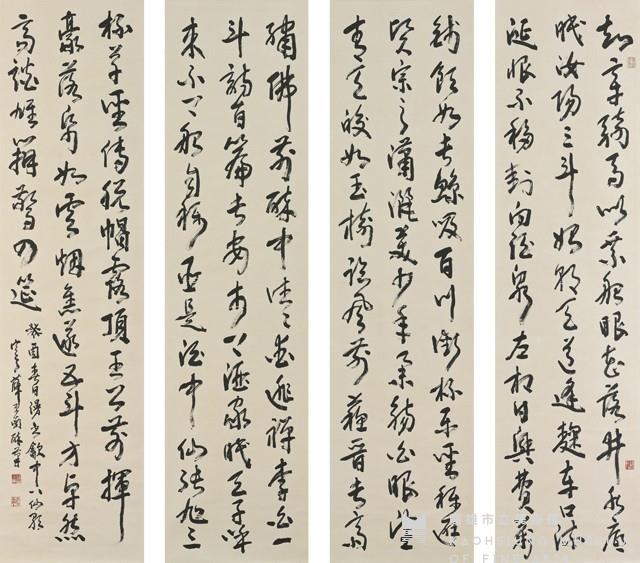 知章騎馬似乘船眼花落井水底
眠汝陽三斗始朝天道逢麴車口流
涎恨不移封向酒泉左相日興費萬
錢飲如長鯨吸百川銜杯樂聖稱避
賢宗之瀟灑美少年舉觴白眼望
青天皎如玉樹臨風前蘇晉長齋
繡佛前醉中往々愛逃禪李白一
斗詩百篇長安市上酒家眠天子呼
來不上船自稱臣是酒中仙張旭三
杯草聖傳脫帽露頂王公前揮
毫落紙如雲煙焦遂五斗方卓然
高談雄辯驚四筵
癸酉春日漫書飲中八仙歌
薛平南醉筆
高雄市立美術館
KAOHSIUNG MUSEUM
OF FINE ARTS